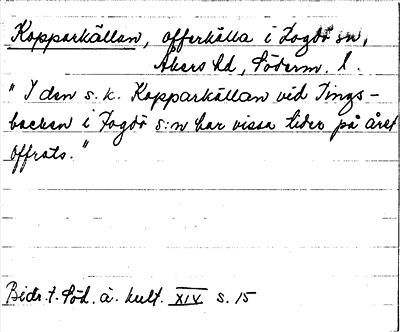 Kopparkällan, offerkälla i Fogdö sn,
Åkers hd, Söderm. l.
"I den s. k. Kopparkällan vid Tings-
backen i Fogdö s:n har vissa tider på året
offrats."
Bidr. t. Söd. ä. kult. XIV s. 15